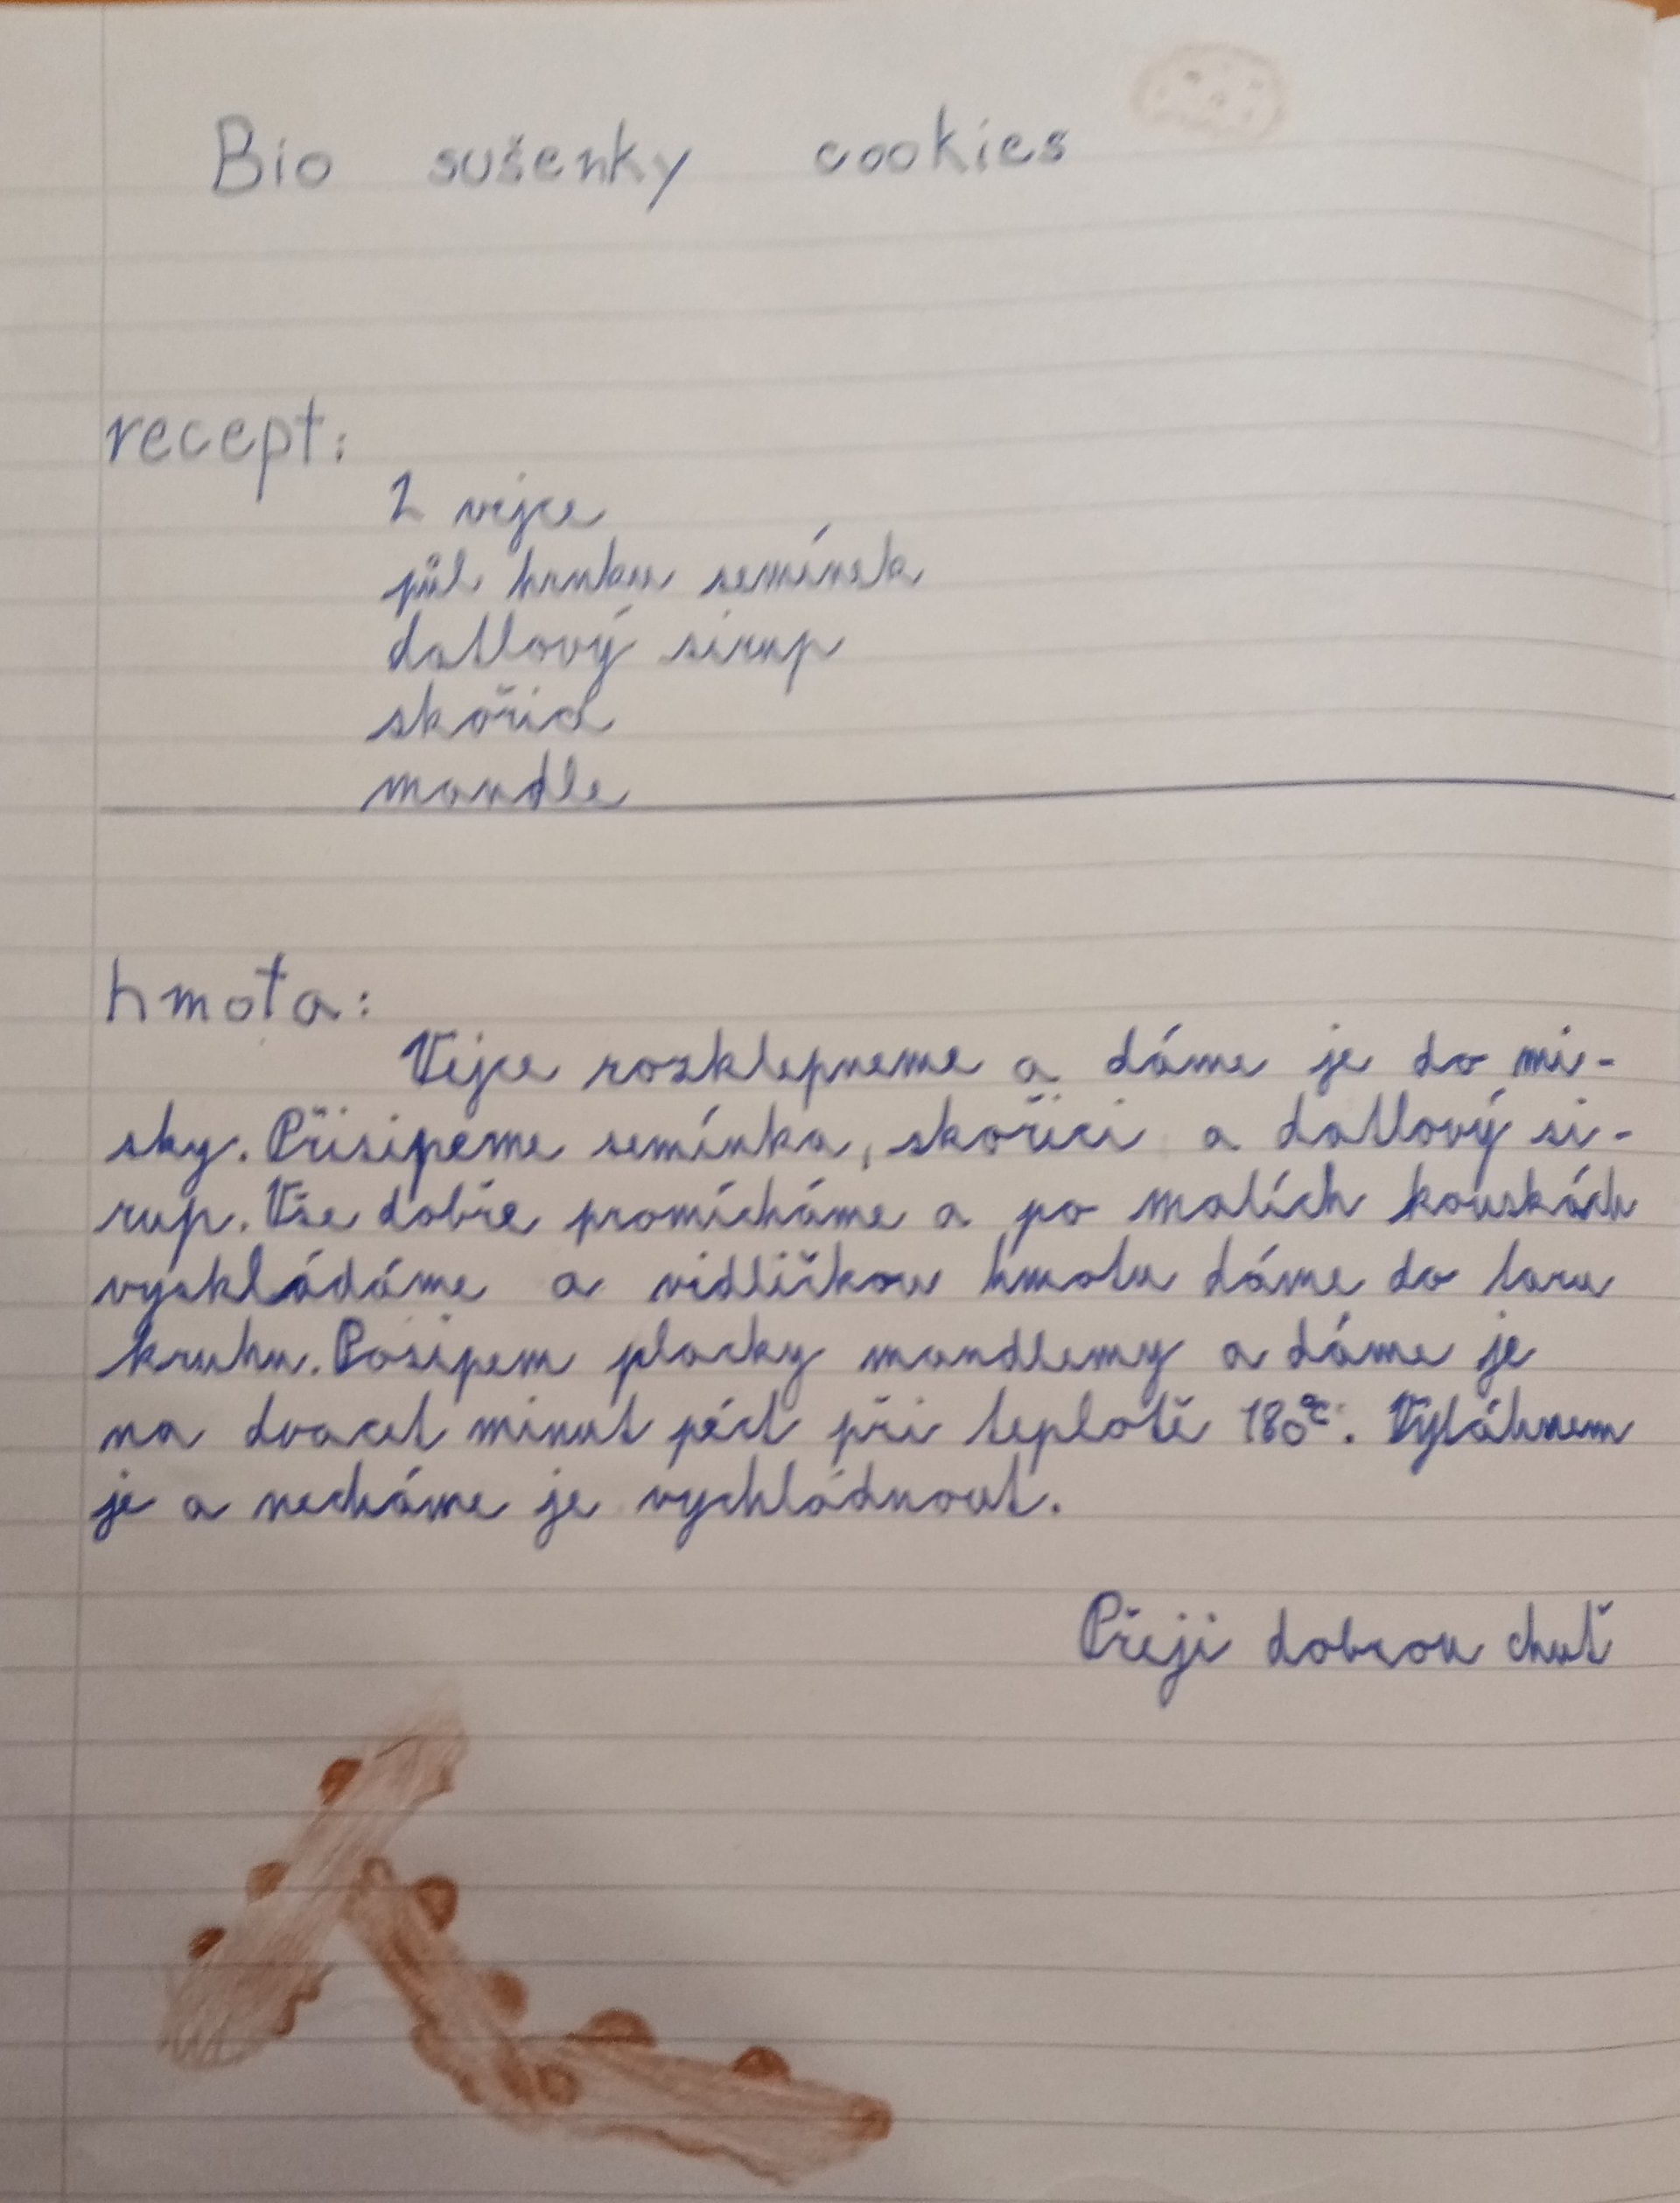 Bio sušenky cookies
recept:
2 vejce
půl hrnku semínek
datlový sirup
skořici
mandle
hmota:
Vejce rozklepneme a dáme je do mi-
sky. Přisipeme semínka, skořici a datlový si-
rup. Vše dobře promícháme a po malích kouskách
vyskládáme a vidličkou hmotu dáme do taru
kruhu. Posipem placky mandlemy a dáme je
na dvacet minut péct při teplotě 180°C. Vytáhnem
je a necháme je vychládnout.
Přeji dobrou chuť